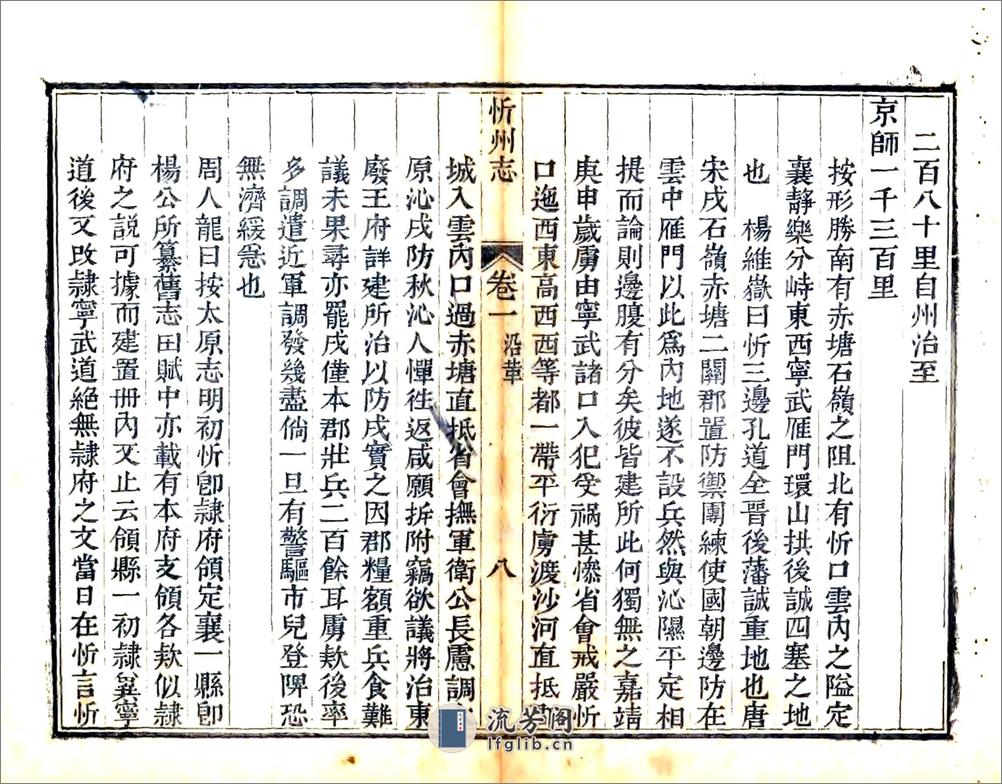 二百八十里自州治至
京師一千三百里
按形勝南有赤塘石嶺之阻北有忻口雲內之隘定
襄靜樂分峙東西寧武雁門環山拱後誠四塞之地
也　楊維嶽曰忻三邊孔道全晉後藩誠重地也唐
宋戍石嶺赤塘二關郡置防禦團練使國朝邊防在
雲中雁門以此為內地遂不設兵然與沁隰平定相
提而論則邊腹有分矣彼皆建所此何獨無之嘉靖
庚申歲虜由寧武諸口入犯受禍甚慘省會戒嚴忻
口迤西東高西西等都一帶平衍虜渡沙河直抵
忻州志　卷一　沿革　八
城入雲內口過赤塘直抵省會撫軍衛公長慮調
原沁戍防秋沁人憚徃返咸願拆附竊欲議將治東
廢王府詳建所治以防戍實之因郡糧額重兵食難
議未果尋亦罷戍僅本郡壯兵二百餘耳虜欵後率
多調遣近軍調發幾盡倘一旦有警驅市兒登陴恐
無濟緩急也
周人龍曰按太原志明初忻卽隷府領定襄一縣卽
楊公所纂舊志田賦中亦載有本府支領各欵似隷
府之說可據而建置冊內又止云領縣一初隷冀寧
道後又改隷寧武道絕無隷府之文當日在忻言忻
流芳閣
lfglib.cn